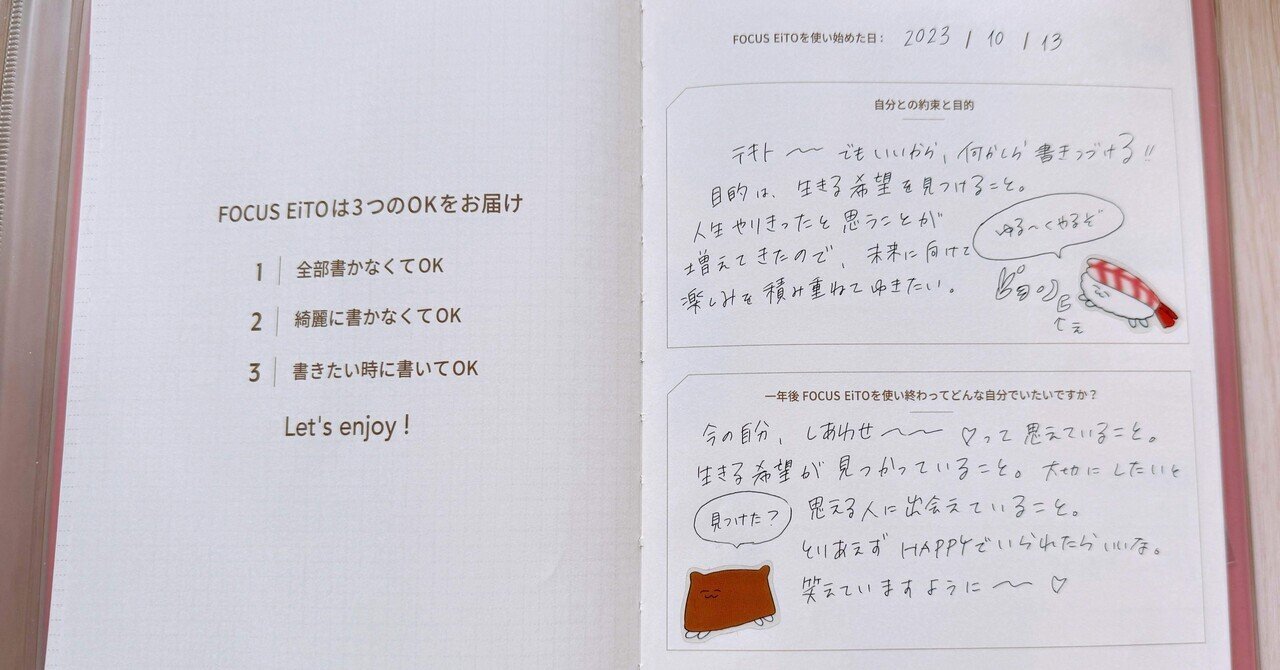 FOCUS EiTOは3つのOKをお届け
1 全部書かなくてOK
2 綺麗に書かなくてOK
3 書きたい時に書いてOK
Let's enjoy !
FOCUS EiTOを使い始めた日： 2023 / 10 / 13
自分との約束と目的
テキト〜〜でもいいから、何かしら書きつづける!!
目的は、生きる希望を見つけること。
人生やりきったと思うことが
増えてきたので、未来に向けて
楽しみを積み重ねてゆきたい。
ゆる〜くやるぞ
↑え
一年後 FOCUS EiTOを使い終わってどんな自分でいたいですか？
今の自分、しあわせ〜〜♡って思えていること。
生きる希望が見つかっていること。大切にしたいと
思える人に出会えていること。
とりあえずHAPPYでいられたらいいな。
笑えていますように〜〜♡
見つけた？